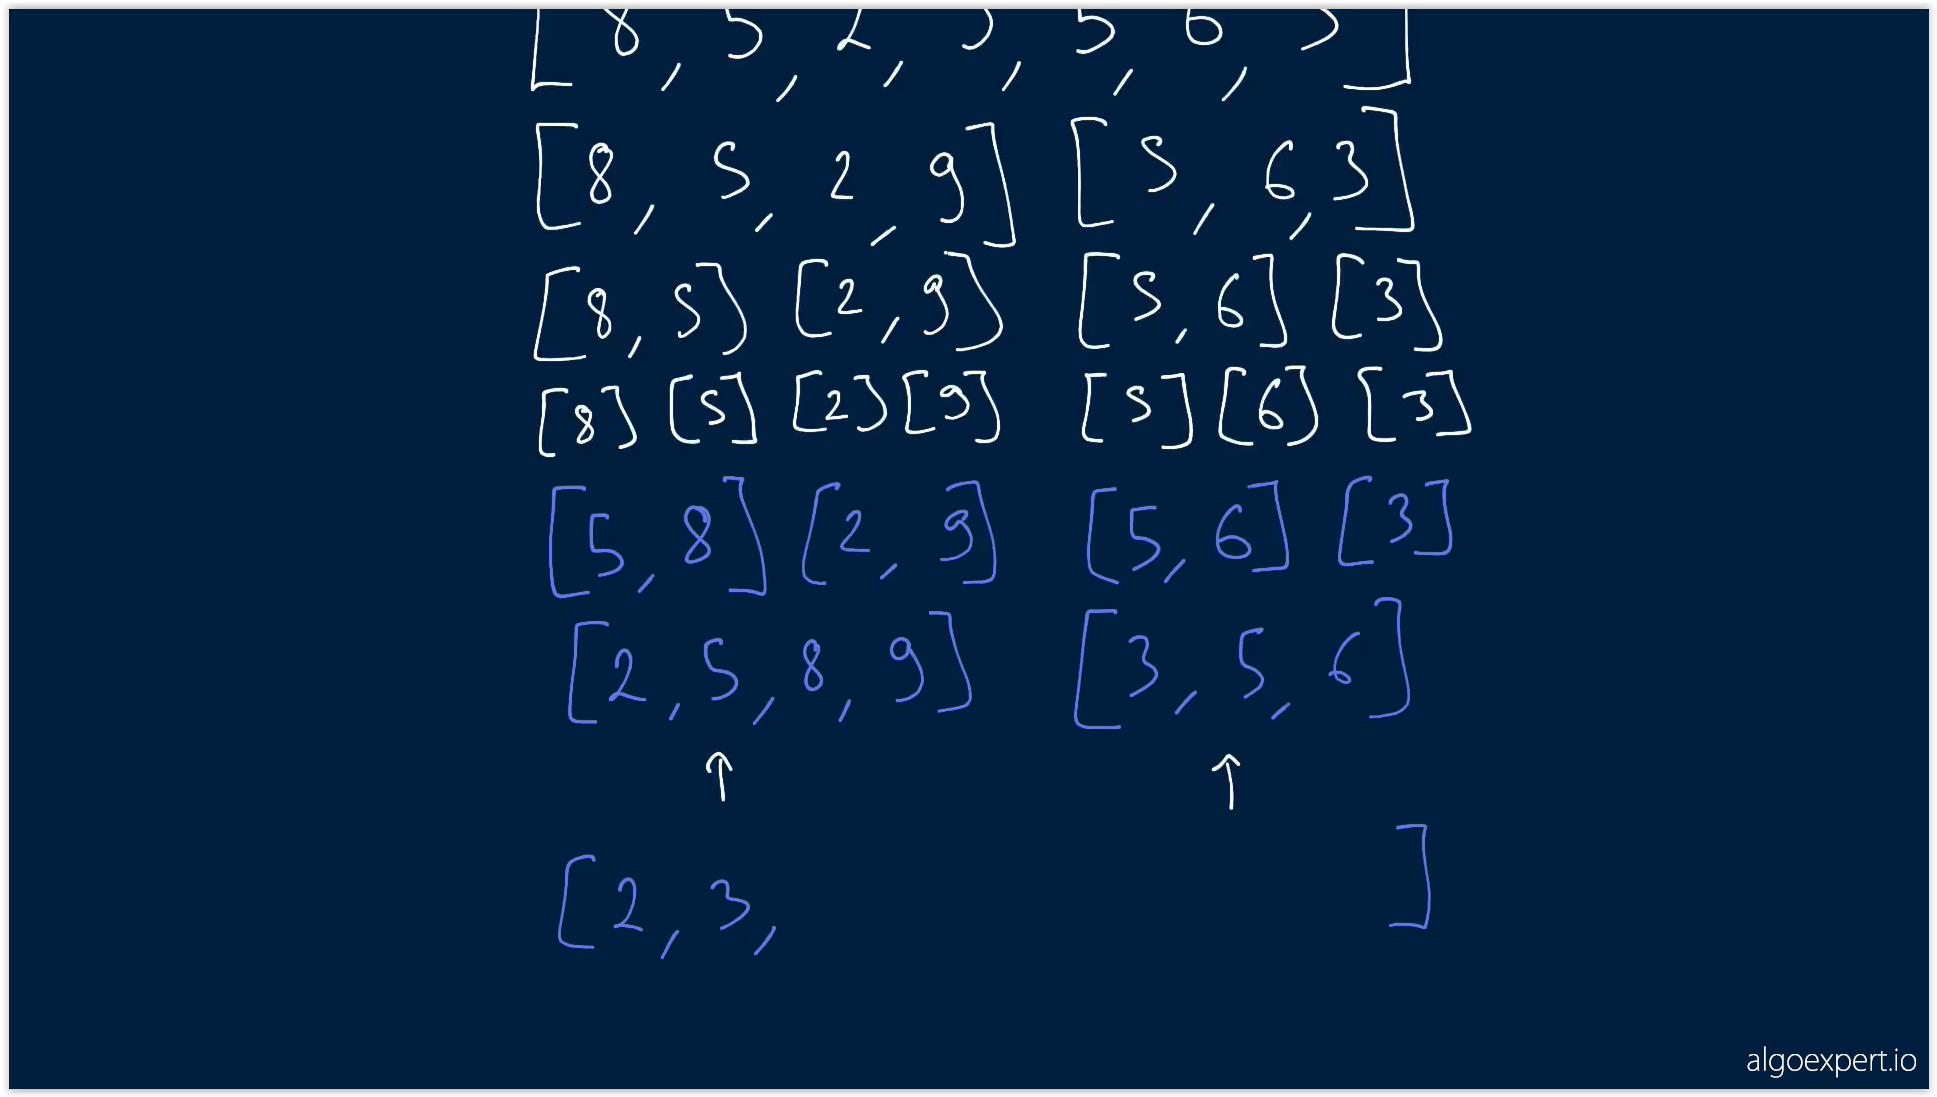 [8, 5, 2, 9, 5, 6, 3]
[8, 5, 2, 9] [5, 6, 3]
[8, 5] [2, 9] [5, 6] [3]
[8] [5] [2] [9] [5] [6] [3]
[5, 8] [2, 9] [5, 6] [3]
[2, 5, 8, 9] [3, 5, 6]
↑ ↑
[2, 3, ]
algoexpert.io